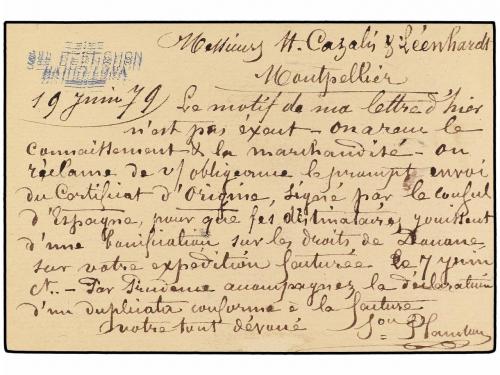 Messieurs H. Cazalis & Léenhardt
Montpellier
BARCELONA
19 Juin 79 Le motif de ma lettre d'hier
n'est pas éxact - on a reçu le
connaissement & la marchandise - on
réclame de v/ obligeance le prompt envoi
du Certificat d'Origine, signé par le consul
d'Espagne, pour que les destinataires jouissent
d'une bonification sur les droits de Douane
sur votre expédition facturée le 7 Juin
Ct. - Par prudence accompagnez la déclaration
d'un duplicata conforme à la facture
votre tout dévoué